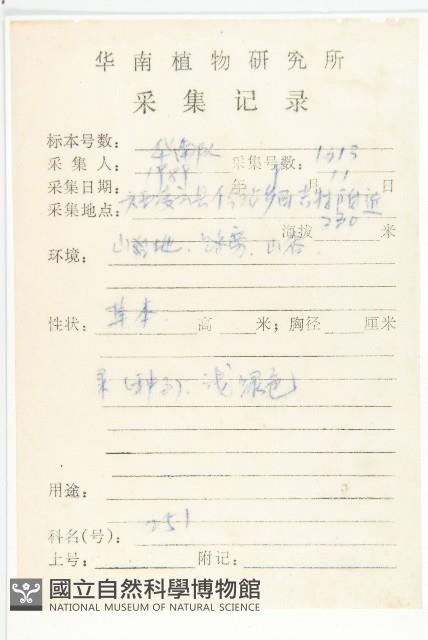 华南植物研究所
采集记录
标本号数：
采集人： 华南队 采集号数： 1313
采集日期： 1989 年 月 11 日
采集地点： 附近
海拔 330 米
环境： 山 地、路旁、山谷
性状： 草本 高 米；胸径 厘米
果（种子）、浅绿色
用途：
科名(号)： 251
土号： 附记：
國立自然科學博物館
NATIONAL MUSEUM OF NATURAL SCIENCE